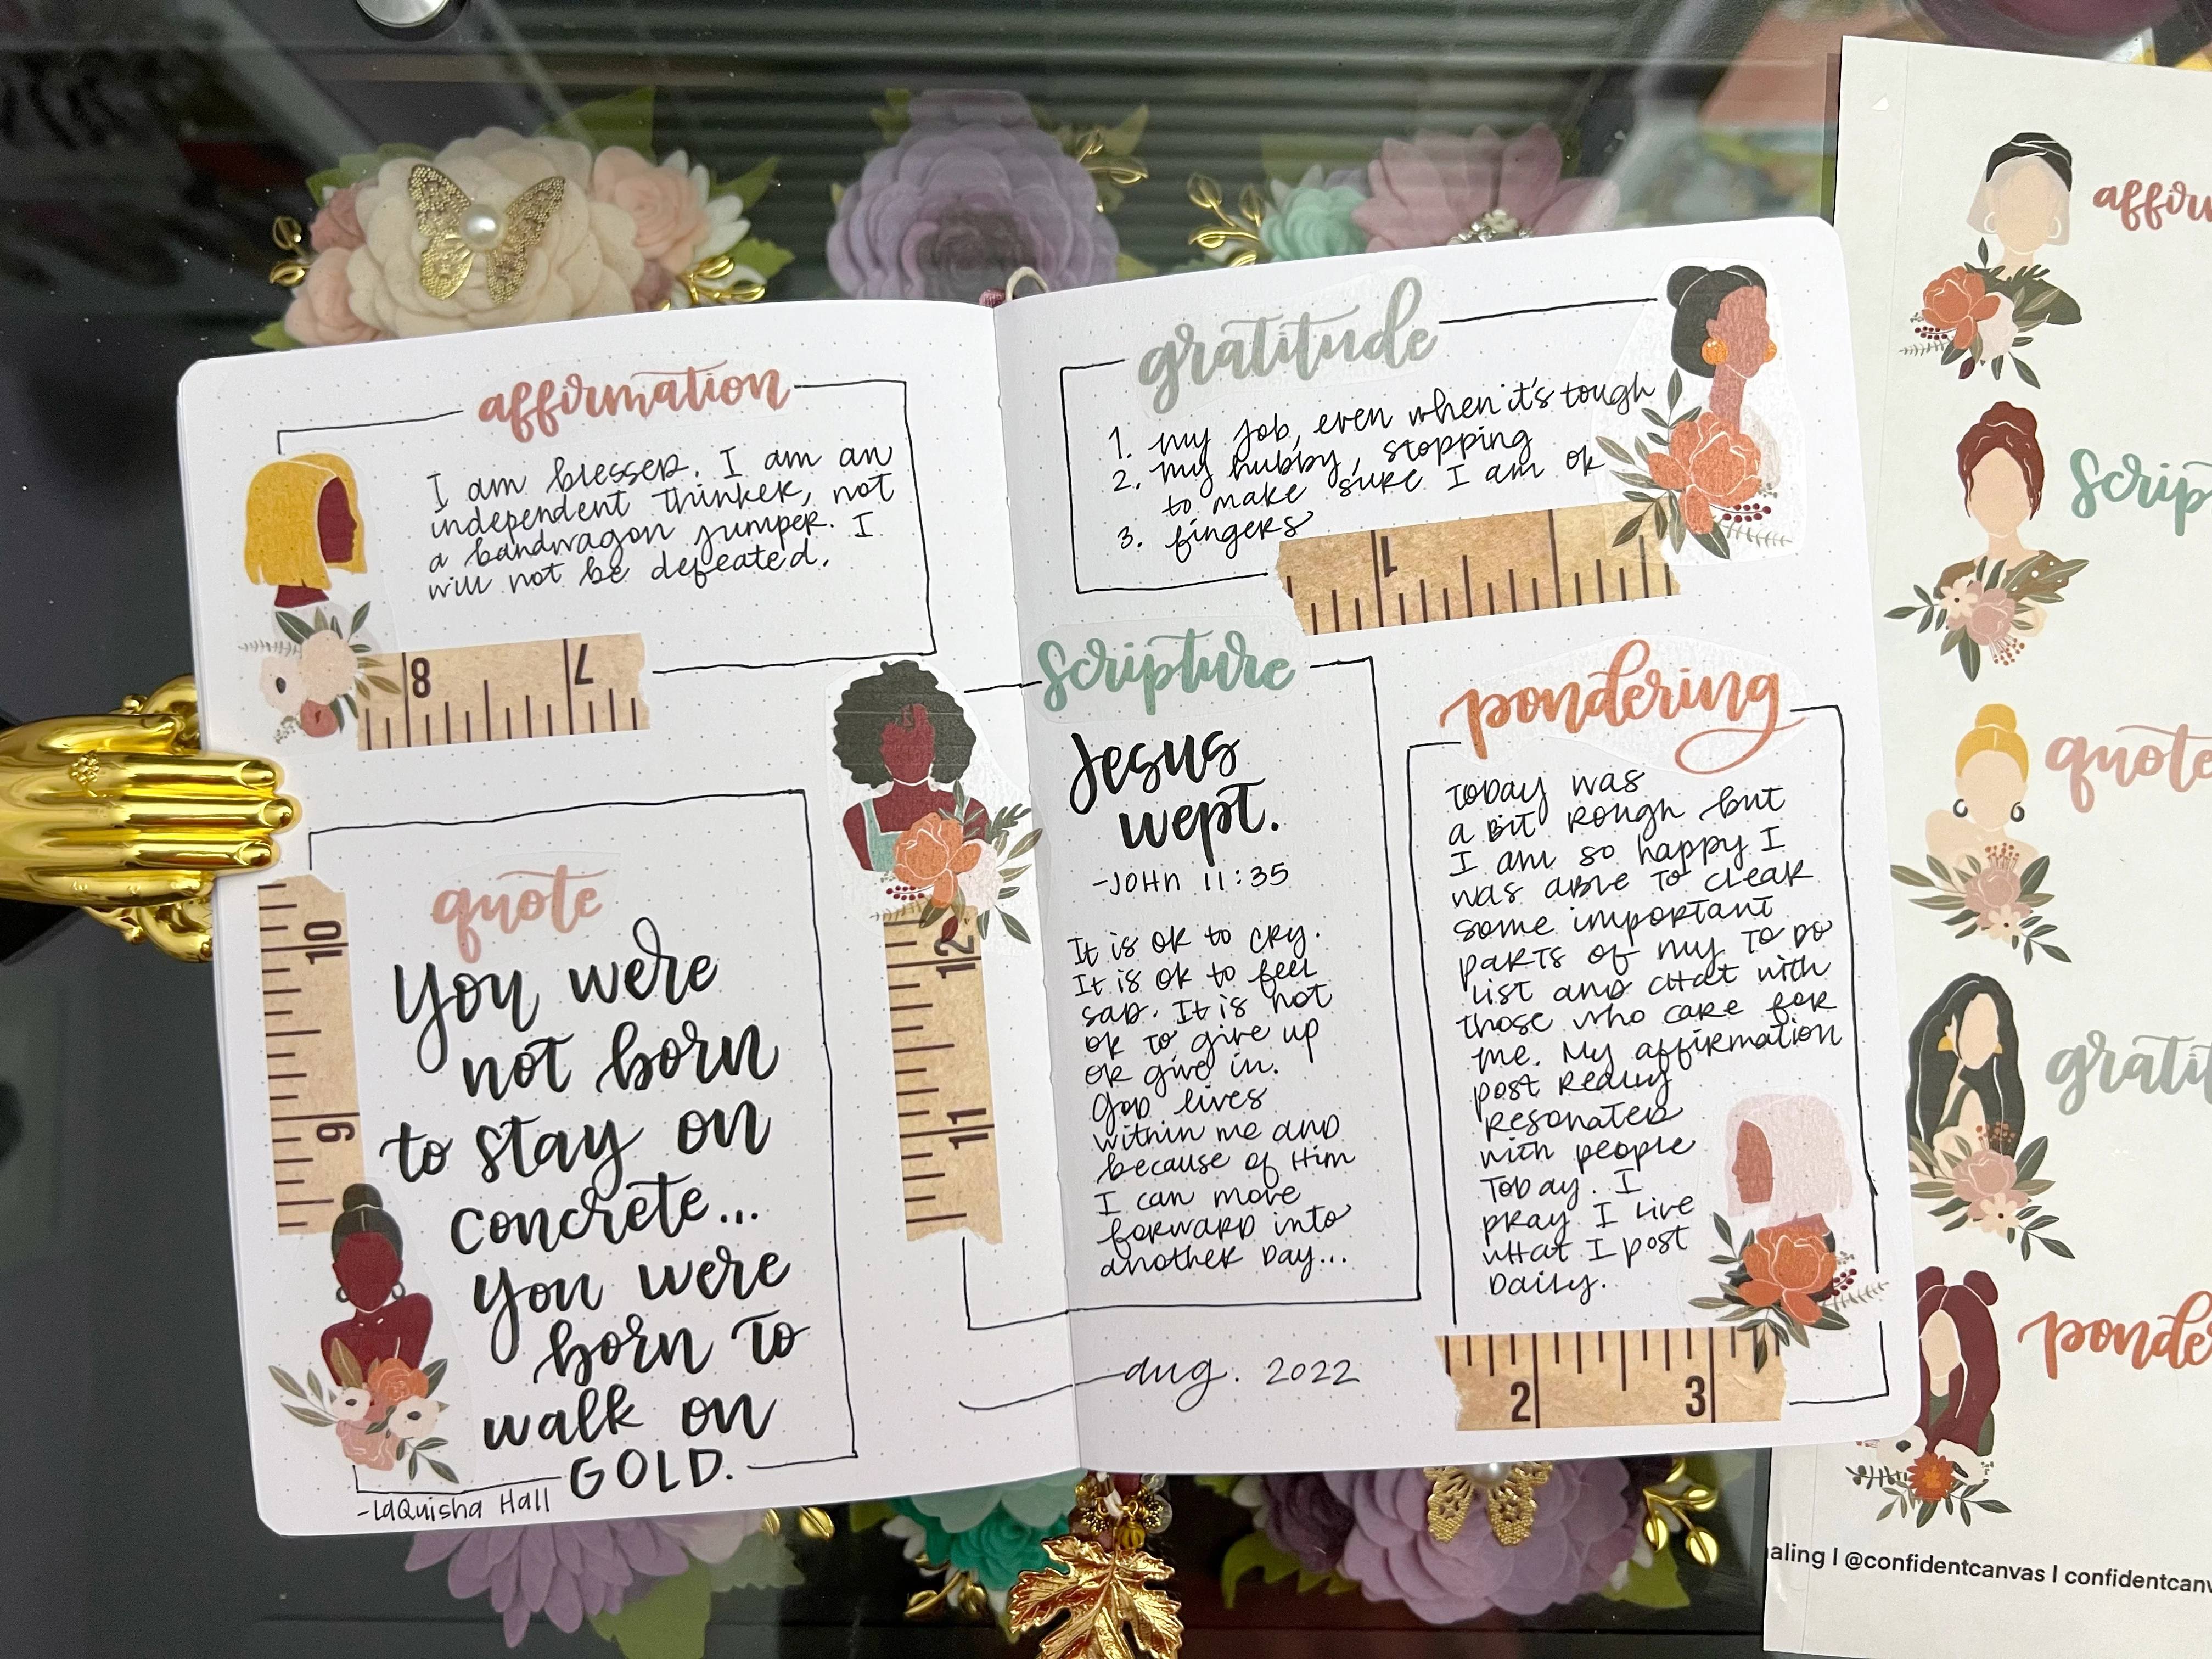 affirmation
I am blessed. I am an
independent thinker, not
a bandwagon jumper. I
will not be defeated.
8 7
quote
You were
not born
to stay on
concrete...
you were
born to
walk on
GOLD.
-LaQuisha Hall
10
9
12
11
gratitude
1. my job, even when it's tough
2. my hubby, stopping
to make sure I am ok
3. fingers
1
scripture
Jesus
wept.
-JOHN 11:35
It is ok to cry.
It is ok to feel
sad. It is not
ok to give up
or give in.
God lives
within me and
because of Him
I can move
forward into
another day...
aug. 2022
pondering
Today was
a bit rough but
I am so happy I
was able to clear
some important
parts of my to do
list and chat with
those who care for
me. My affirmation
post really
resonated
with people
today. I
pray I live
what I post
daily.
2 3
affir
scrip
quote
gratit
ponde
aling | @confidentcanvas | confidentcanv